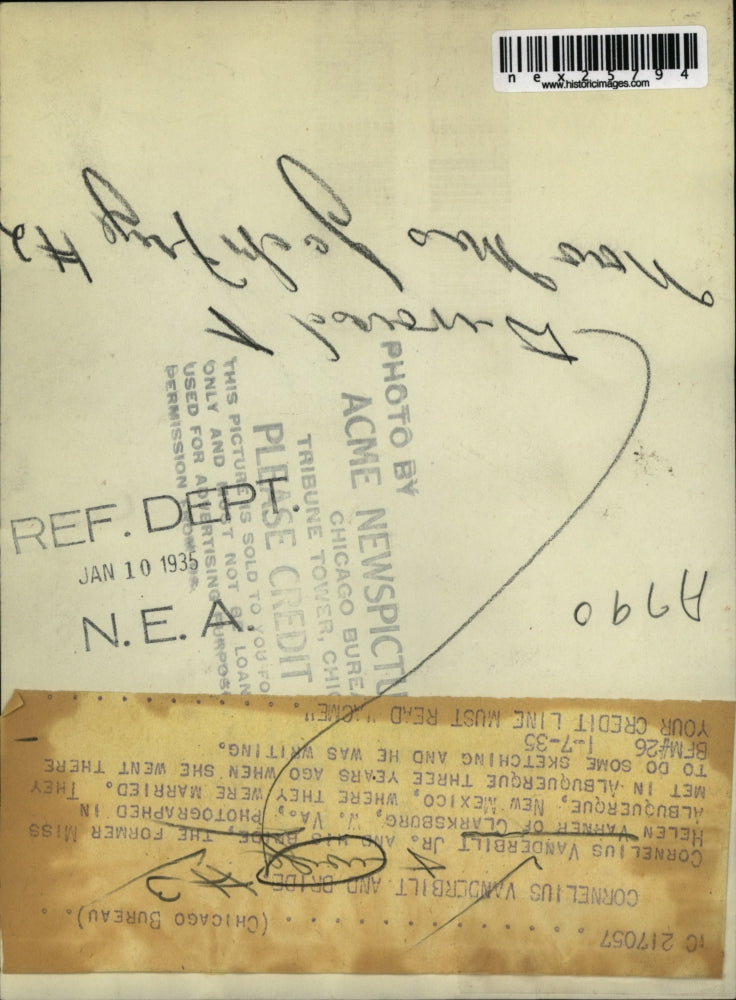 nex25794
www.historicimages.com
#2
New Mex
PHOTO BY
ACME NEWSPICTU
CHICAGO BUREA
TRIBUNE TOWER, CHIC
PLEASE CREDIT
THIS PICTURE IS SOLD TO YOU FO
ONLY AND MUST NOT BE LOAN
USED FOR ADVERTISING PURPOSE
PERMISSION
REF. DEPT.
JAN 10 1935
N.E.A.
A790
C 217057 (CHICAGO BUREAU).
CORNELIUS VANDERBILT AND BRIDE
#2
CORNELIUS VANDERBILT JR. AND HIS BRIDE, THE FORMER MISS
HELEN VARNER OF CLARKSBURG, W. VA., PHOTOGRAPHED IN
ALBUQUERQUE, NEW MEXICO, WHERE THEY WERE MARRIED. THEY
MET IN ALBUQUERQUE THREE YEARS AGO WHEN SHE WENT THERE
TO DO SOME SKETCHING AND HE WAS WRITING.
BFM#26 1-7-35
YOUR CREDIT LINE MUST READ "ACME"